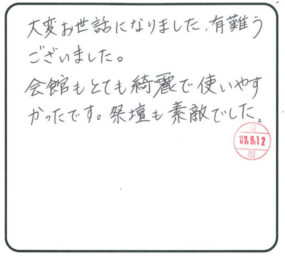 大変お世話になりました。有難う
ございました。
会館もとても綺麗で使いやす
かったです。祭壇も素敵でした。
9.12